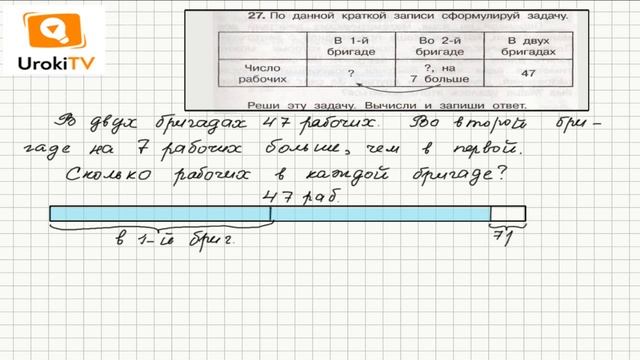 UrokiTV
27. По данной краткой записи сформулируй задачу.
В 1-й бригаде
Во 2-й бригаде
В двух бригадах
Число рабочих
?
?, на 7 больше
47
Реши эту задачу. Вычисли и запиши ответ.
В двух бригадах 47 рабочих. Во второй бри-
гаде на 7 рабочих больше, чем в первой.
Сколько рабочих в каждой бригаде?
47 раб.
в 1-й бриг.